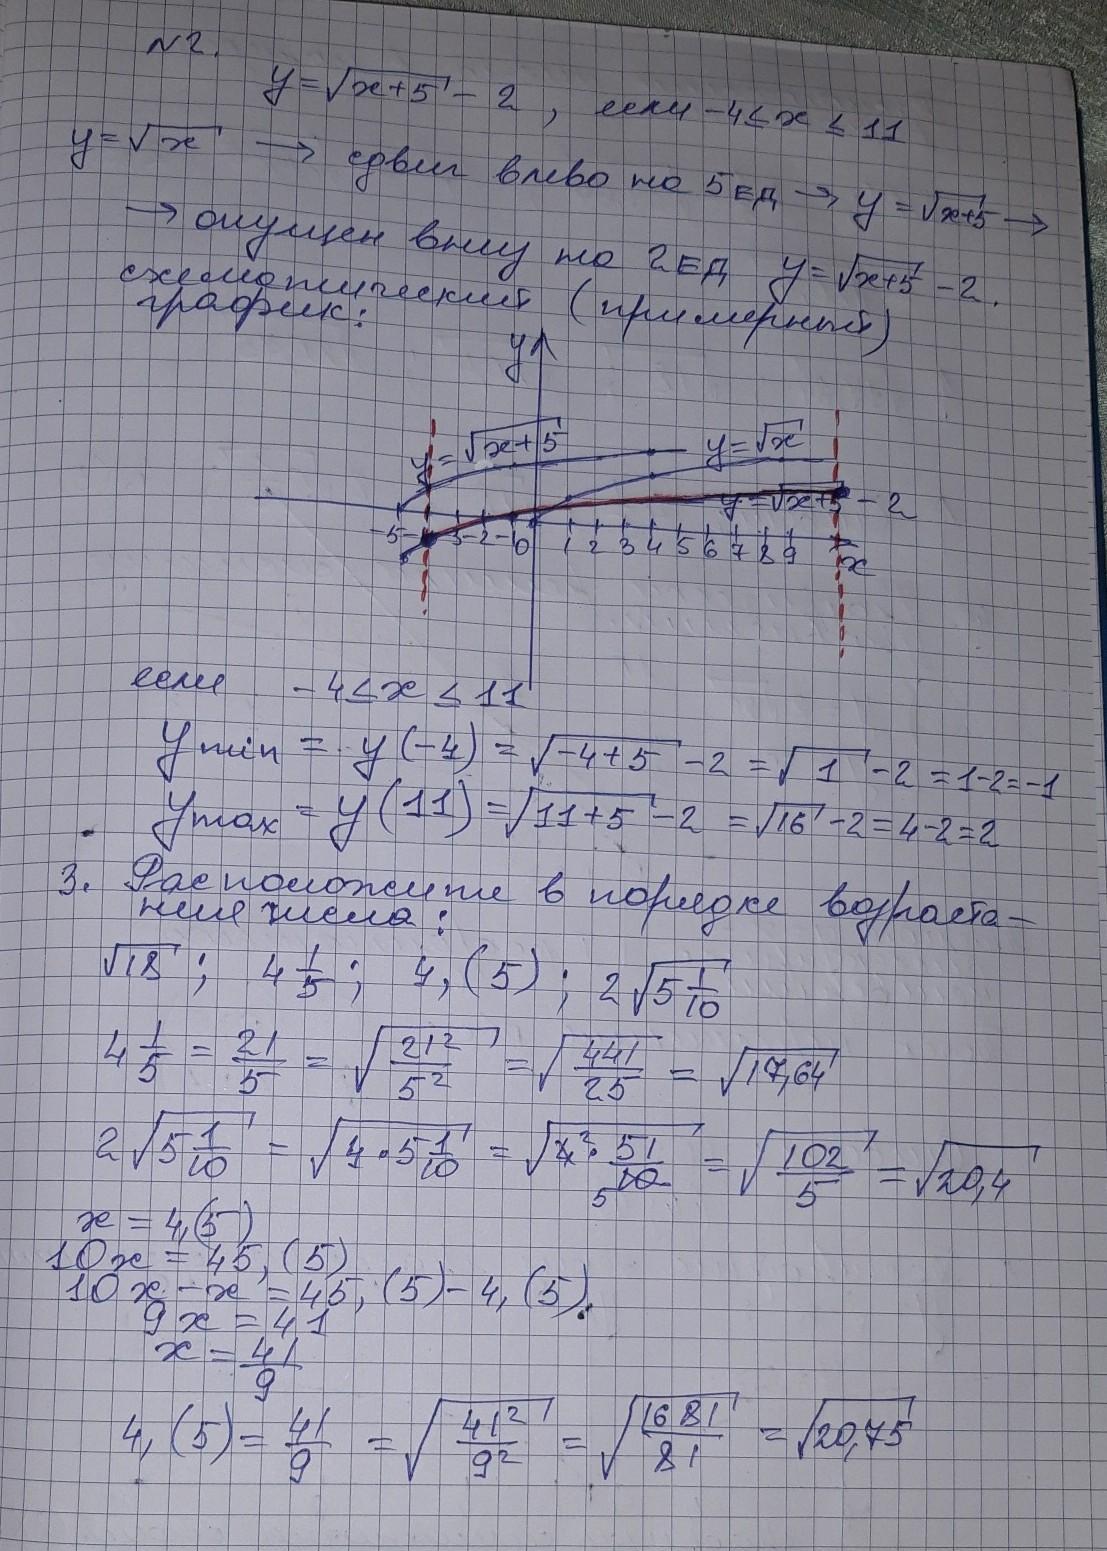 N2.
y = √(x+5) - 2, если -4 ≤ x ≤ 11
y = √x → сдвиг влево на 5 ЕД → y = √(x+5) →
→ опущен вниз на 2 ЕД y = √(x+5) - 2.
схематический (примерный)
график:
y
y = √(x+5) y = √x
y = √(x+5) - 2
-5 -3 -2 -1 0 1 2 3 4 5 6 7 8 9 x
если -4 ≤ x ≤ 11
y min = y(-4) = √(-4+5) - 2 = √1 - 2 = 1-2 = -1
y max = y(11) = √(11+5) - 2 = √16 - 2 = 4-2 = 2
3. Расположите в порядке возраста-
ние числа:
√18 ; 4 1/5 ; 4,(5) ; 2√(5 1/10)
4 1/5 = 21/5 = √(21²/5²) = √(441/25) = √17,64
2√(5 1/10) = √(4·5 1/10) = √(4² · 51/10 5) = √(102/5) = √20,4
x = 4,(5)
10x = 45,(5)
10x - x = 45,(5) - 4,(5).
9x = 41
x = 41/9
4,(5) = 41/9 = √(41²/9²) = √(1681/81) = √20,75